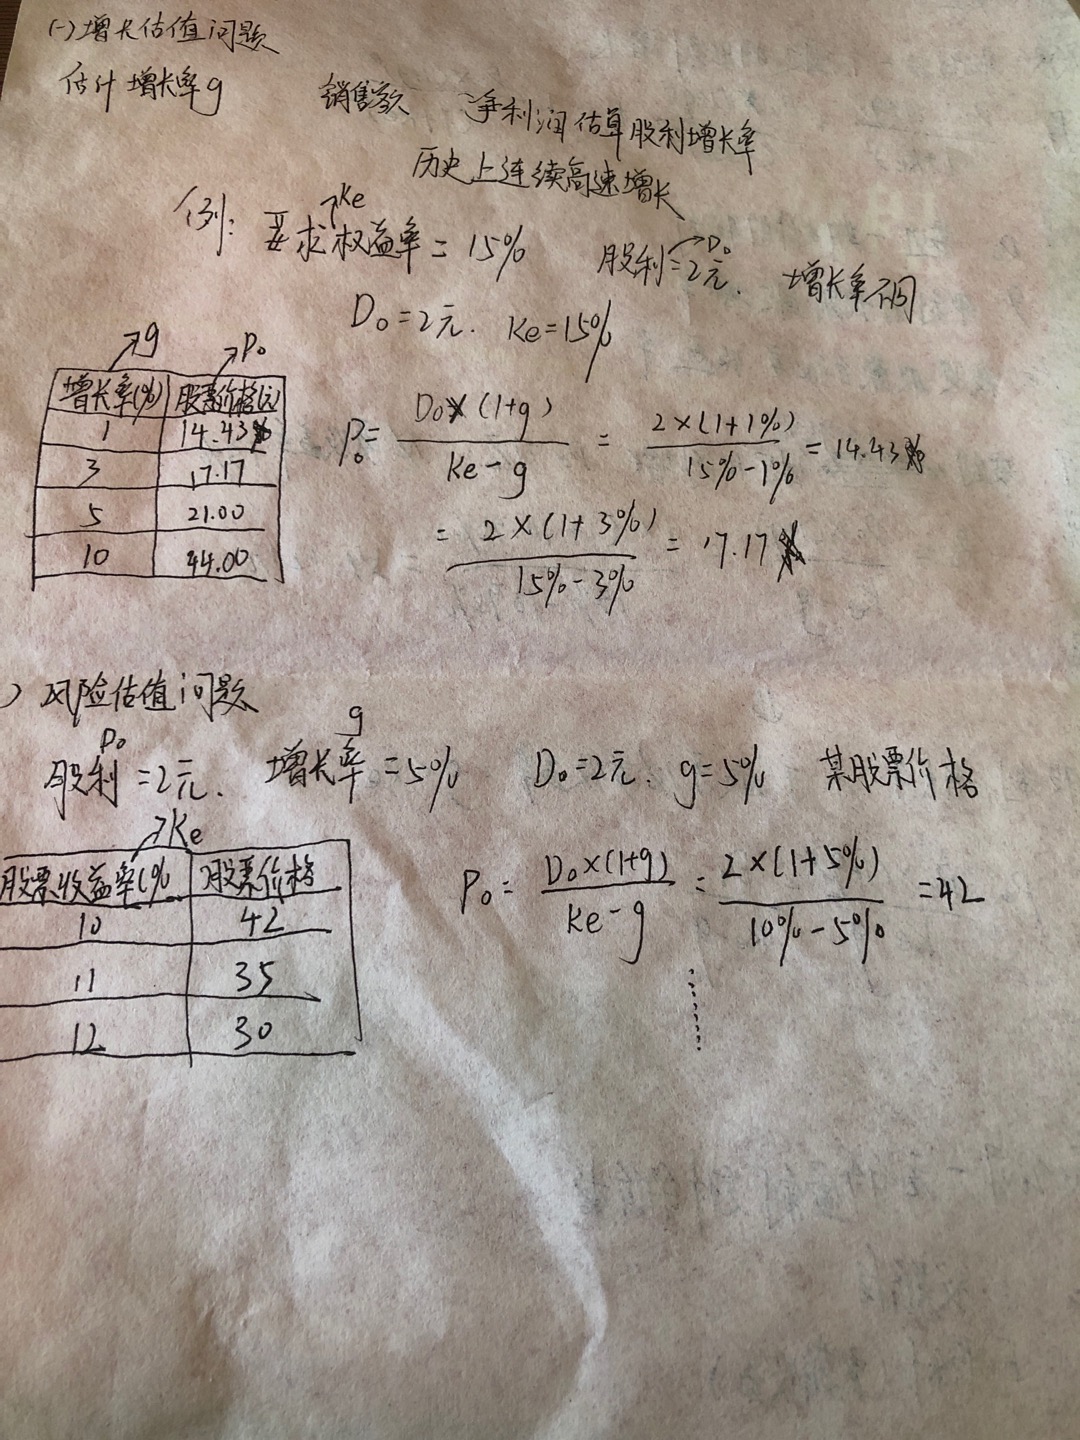 (一)增长估值问题
估计增长率g 销售额 净利润估算股利增长率
历史上连续高速增长
Ke
例: 要求权益率=15% 股利=2元. 增长率不同
D₀
D₀=2元. Ke=15%
g P₀
增长率(%) 股票价格(元)
1 14.43
3 17.17
5 21.00
10 44.00
P₀= D₀×(1+g) / Ke-g = 2×(1+1%) / 15%-1% = 14.43
= 2×(1+3%) / 15%-3% = 17.17
) 风险估值问题
D₀ g
股利=2元. 增长率=5% D₀=2元. g=5% 某股票价格
Ke
股票收益率(% 股票价格
10 42
11 35
12 30
P₀= D₀×(1+g) / Ke-g = 2×(1+5%) / 10%-5% =42